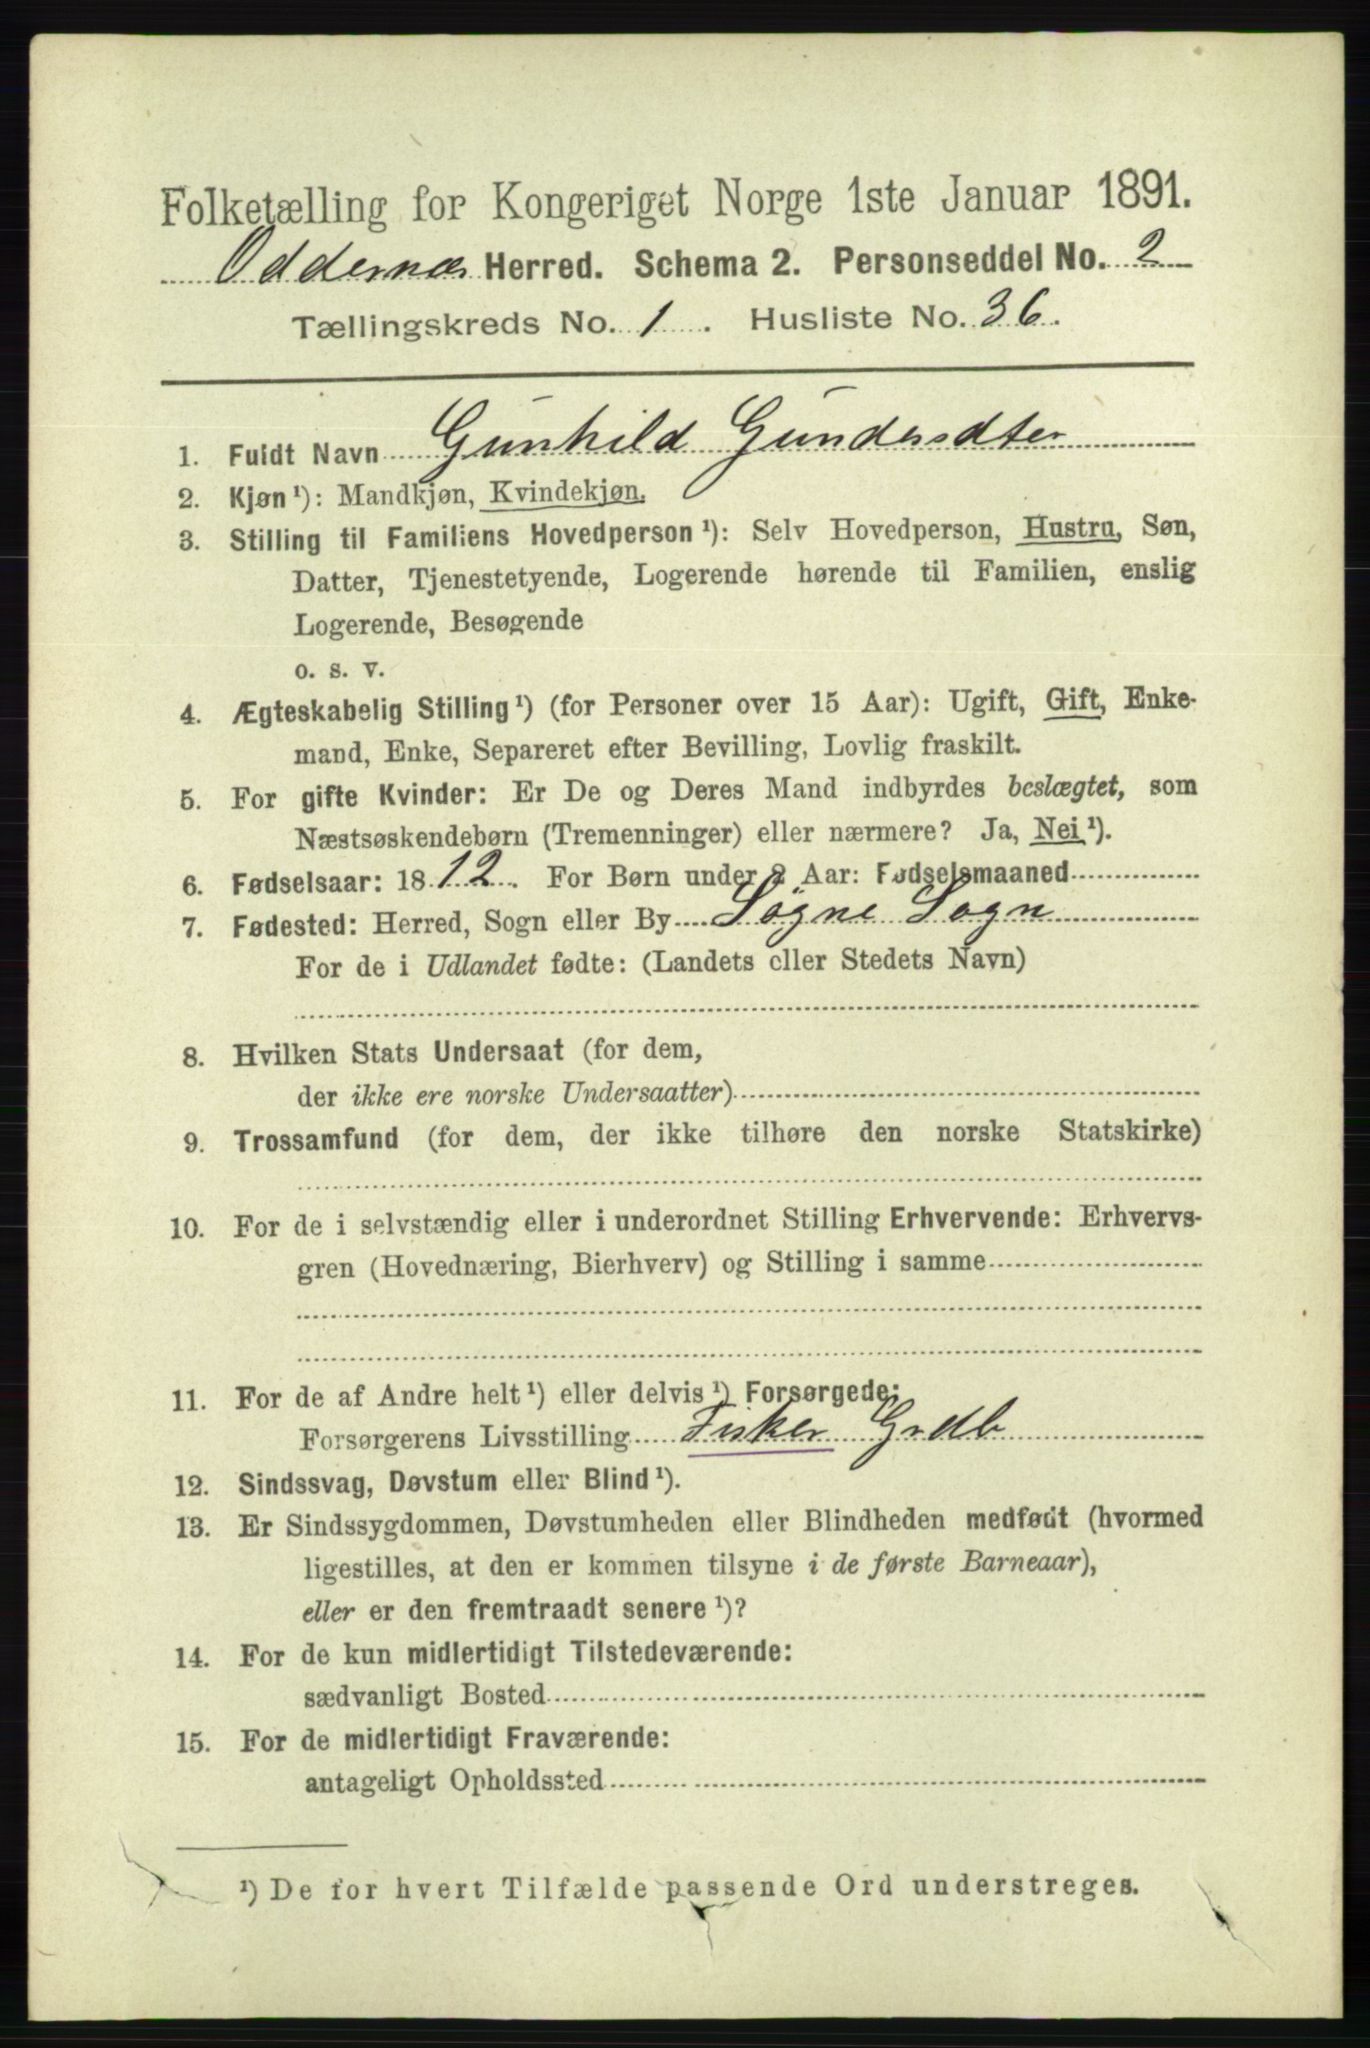 Folketælling for Kongeriget Norge 1ste Januar 1891.
Oddernæs Herred. Schema 2. Personseddel No. 2
Tællingskreds No. 1. Husliste No. 36.
1. Fuldt Navn Gunhild Gundersdter
2. Kjøn ¹): Mandkjøn, Kvindekjøn.
3. Stilling til Familiens Hovedperson ¹): Selv Hovedperson, Hustru, Søn,
Datter, Tjenestetyende, Logerende hørende til Familien, enslig
Logerende, Besøgende
o. s. v.
4. Ægteskabelig Stilling ¹) (for Personer over 15 Aar): Ugift, Gift, Enke-
mand, Enke, Separeret efter Bevilling, Lovlig fraskilt.
5. For gifte Kvinder: Er De og Deres Mand indbyrdes beslægtet, som
Næstsøskendebørn (Tremenninger) eller nærmere? Ja, Nei ¹).
6. Fødselsaar: 1812. For Børn under 2 Aar: Fødselsmaaned
7. Fødested: Herred, Sogn eller By Søgne Sogn
For de i Udlandet fødte: (Landets eller Stedets Navn)
8. Hvilken Stats Undersaat (for dem,
der ikke ere norske Undersaatter)
9. Trossamfund (for dem, der ikke tilhøre den norske Statskirke)
10. For de i selvstændig eller i underordnet Stilling Erhvervende: Erhvervs-
gren (Hovednæring, Bierhverv) og Stilling i samme
11. For de af Andre helt ¹) eller delvis ¹) Forsørgede:
Forsørgerens Livsstilling Fisker Grdb
12. Sindssvag, Døvstum eller Blind ¹).
13. Er Sindssygdommen, Døvstumheden eller Blindheden medfødt (hvormed
ligestilles, at den er kommen tilsyne i de første Barneaar),
eller er den fremtraadt senere ¹)?
14. For de kun midlertidigt Tilstedeværende:
sædvanligt Bosted
15. For de midlertidigt Fraværende:
antageligt Opholdssted
¹) De for hvert Tilfælde passende Ord understreges.